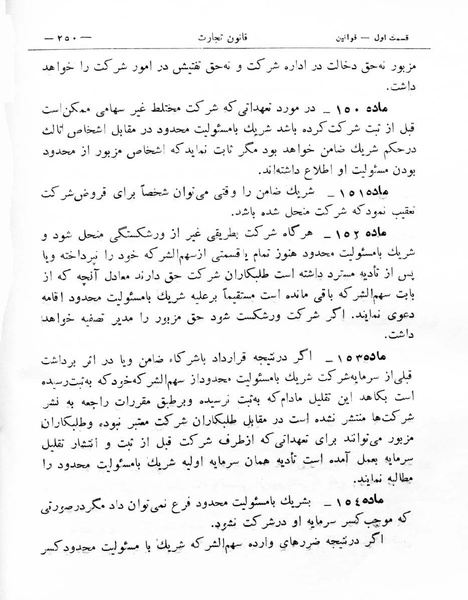 قسمت اول — قوانین
قانون تجارت
— ۲۵۰ —
مزبور نه‌حق دخالت در اداره شرکت و نه‌حق تفتیش در امور شرکت را خواهد
داشت.
ماده ۱۵۰ _ در مورد تعهداتی‌که شرکت مختلط غیر سهامی ممکن‌است
قبل از ثبت شرکت‌کرده باشد شریك بامسئولیت محدود در مقابل اشخاص ثالث
درحکم شریك ضامن خواهد بود مگر ثابت نمایدکه اشخاص مزبور از محدود
بودن مسئولیت او اطلاع داشته‌اند.
ماده ۱۵۱ _ شریك ضامن را وقتی می‌توان شخصاً برای قروض‌شرکت
تعقیب نمودکه شرکت منحل شده باشد.
ماده ۱۵۲ _ هرگاه شرکت بطریقی غیر از ورشکستگی منحل شود و
شریك بامسئولیت محدود هنوز تمام یاقسمتی ازسهم‌الشرکه خود را نپرداخته ویا
پس از تأدیه مسترد داشته است طلبکاران شرکت حق دارند معادل آنچه که از
بابت سهم‌الشرکه باقی مانده است مستقیماً برعلیه شریك بامسئولیت محدود اقامه
دعوی نمایند. اگر شرکت ورشکست شود حق مزبور را مدیر تصفیه خواهد
داشت.
ماده ۱۵۳ _ اگر درنتیجه قرارداد باشرکاء ضامن ویا در اثر برداشت
قبلی‌از سرمایه‌شرکت شریك بامسئولیت محدوداز سهم‌الشرکه‌خودکه به‌ثبت‌رسیده
است بکاهد این تقلیل مادام‌که به‌ثبت نرسیده وبرطبق مقررات راجعه به نشر
شرکت‌ها منتشر نشده است در مقابل طلبکاران شرکت معتبر نبوده وطلبکاران
مزبور می‌توانند برای تعهداتی که ازطرف شرکت قبل از ثبت و انتشار تقلیل
سرمایه بعمل آمده است تأدیه همان سرمایه اولیه شریك بامسئولیت محدود را
مطالبه نمایند.
ماده ۱۵۴ _ بشریك بامسئولیت محدود فرع نمی‌توان داد مگردرصورتی
که موجب‌کسر سرمایه او درشرکت نشود.
اگر درنتیجه ضررهای وارده سهم‌الشرکه شریك با مسئولیت محدودکسر